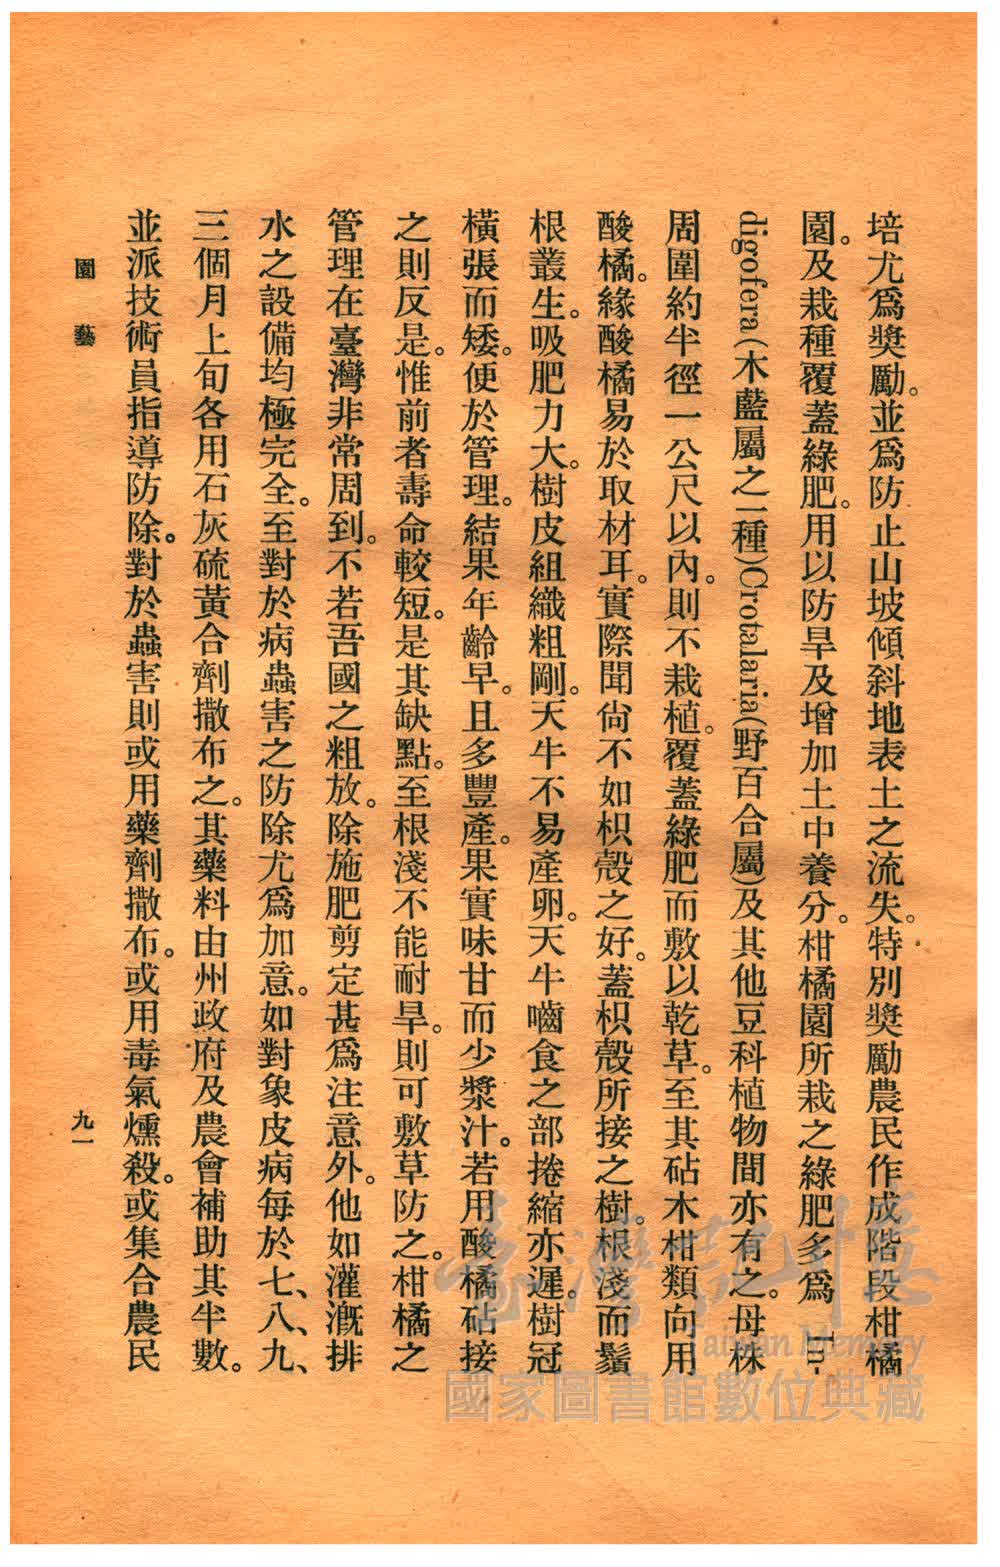 培尤爲奬勵。並爲防止山坡傾斜地表土之流失。特別奬勵農民作成階段柑橘
園。及栽種覆蓋綠肥。用以防旱及增加土中養分。柑橘園所栽之綠肥多爲 In-
digofera(木藍屬之一種)Crotalaria(野百合屬)及其他豆科植物間亦有之。母株
周圍約半徑一公尺以內。則不栽植。覆蓋綠肥而敷以乾草。至其砧木柑類向用
酸橘。緣酸橘易於取材耳。實際聞尙不如枳殼之好。蓋枳殼所接之樹。根淺而鬚
根叢生。吸肥力大。樹皮組織粗剛。天牛不易產卵。天牛嚙食之部捲縮亦遲。樹冠
橫張而矮。便於管理。結果年齡早。且多豐產。果實味甘而少漿汁。若用酸橘砧接
之則反是。惟前者壽命較短。是其缺點。至根淺不能耐旱。則可敷草防之。柑橘之
管理在臺灣非常周到。不若吾國之粗放。除施肥剪定甚爲注意外。他如灌漑排
水之設備均極完全。至對於病蟲害之防除尤爲加意。如對象皮病每於七、八、九、
三個月上旬各用石灰硫黃合劑撒布之。其藥料由州政府及農會補助其半數。
並派技術員指導防除。對於蟲害則或用藥劑撒布。或用毒氣燻殺。或集合農民
園藝
九一
臺灣記憶
Taiwan Memory
國家圖書館數位典藏